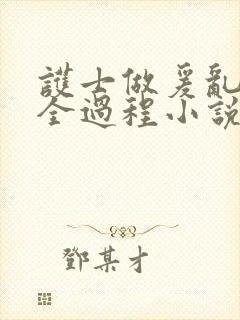 護士做爰亂
全過程小說
鄧某才